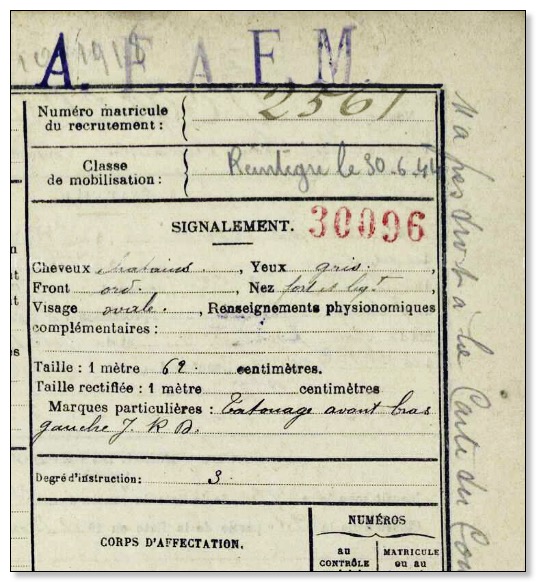 A. F. A. F. M
Numéro matricule
du recrutement : 2561
Classe
de mobilisation : Réintégré le 30.6.44
SIGNALEMENT. 30096
Cheveux chatains. , Yeux gris. ,
Front ord. , Nez fort et
Visage ovale. , Renseignements physionomiques
complémentaires :
Taille : 1 mètre 62. centimètres.
Taille rectifiée : 1 mètre centimètres
Marques particulières : Tatouage avant bras
gauche J. R D.
Degré d'instruction : 3.
CORPS D'AFFECTATION.
NUMÉROS
au
CONTRÔLE
MATRICULE
ou au
N'a pas droit à la Carte du